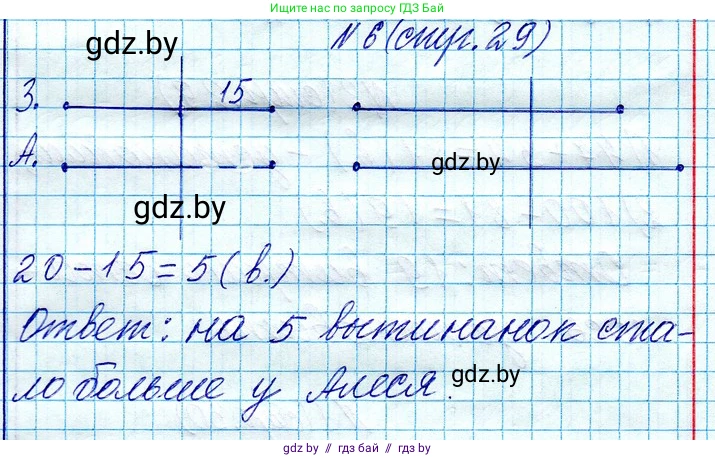 Ищите нас по запросу ГДЗ Бай
gdz.by
№ 6 (стр. 29)
З. 15
А.
gdz.by
gdz.by
20 - 15 = 5 (в.)
Ответ: на 5 вытинанок ста-
ло больше у Алеся.
gdz.by
gdz.by // гдз бай // гдз by